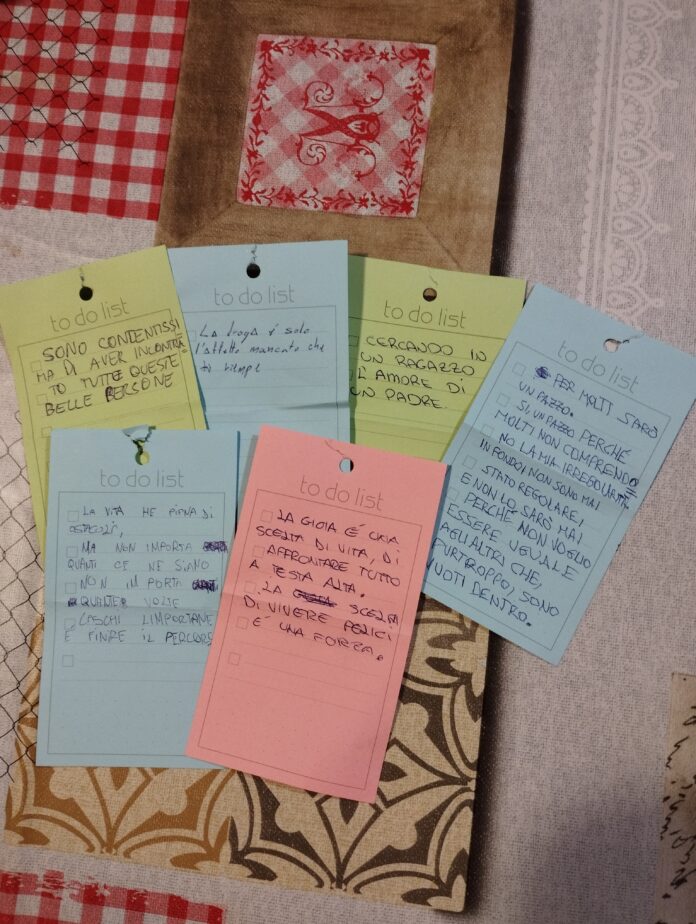 to do list
SONO CONTENTISSI
MA DI AVER INCONTRA-
TO TUTTE QUESTE
BELLE PERSONE
to do list
LA droga è solo
l'affetto mancato che
ti riempi
to do list
CERCANDO IN
UN RAGAZZO
L'AMORE DI
UN PADRE.
to do list
PER MOLTI SARÒ
UN PAZZO.
SI, UN PAZZO PERCHÉ
MOLTI NON COMPRENDONO
LA MIA IRREGOLARITÀ.
IN FONDO, NON SONO MAI
STATO REGOLARE,
E NON LO SARÒ MAI
PERCHÉ NON VOGLIO
ESSERE UGUALE
AGLI ALTRI CHE,
PURTROPPO, SONO
VUOTI DENTRO.
to do list
LA VITA HE PIENA DI
OSTACOLI,
MA NON IMPORTA
QUANTI CE NE SIANO
NON IMPORTA
QUANTE VOLTE
CASCHI LIMPORTANE
E FINIRE IL PERCORS
to do list
LA GIOIA É UNA
SCELTA DI VITA, DI
AFFRONTARE TUTTO
A TESTA ALTA.
LA SCELTA
DI VIVERE FELICI
E' UNA FORZA.